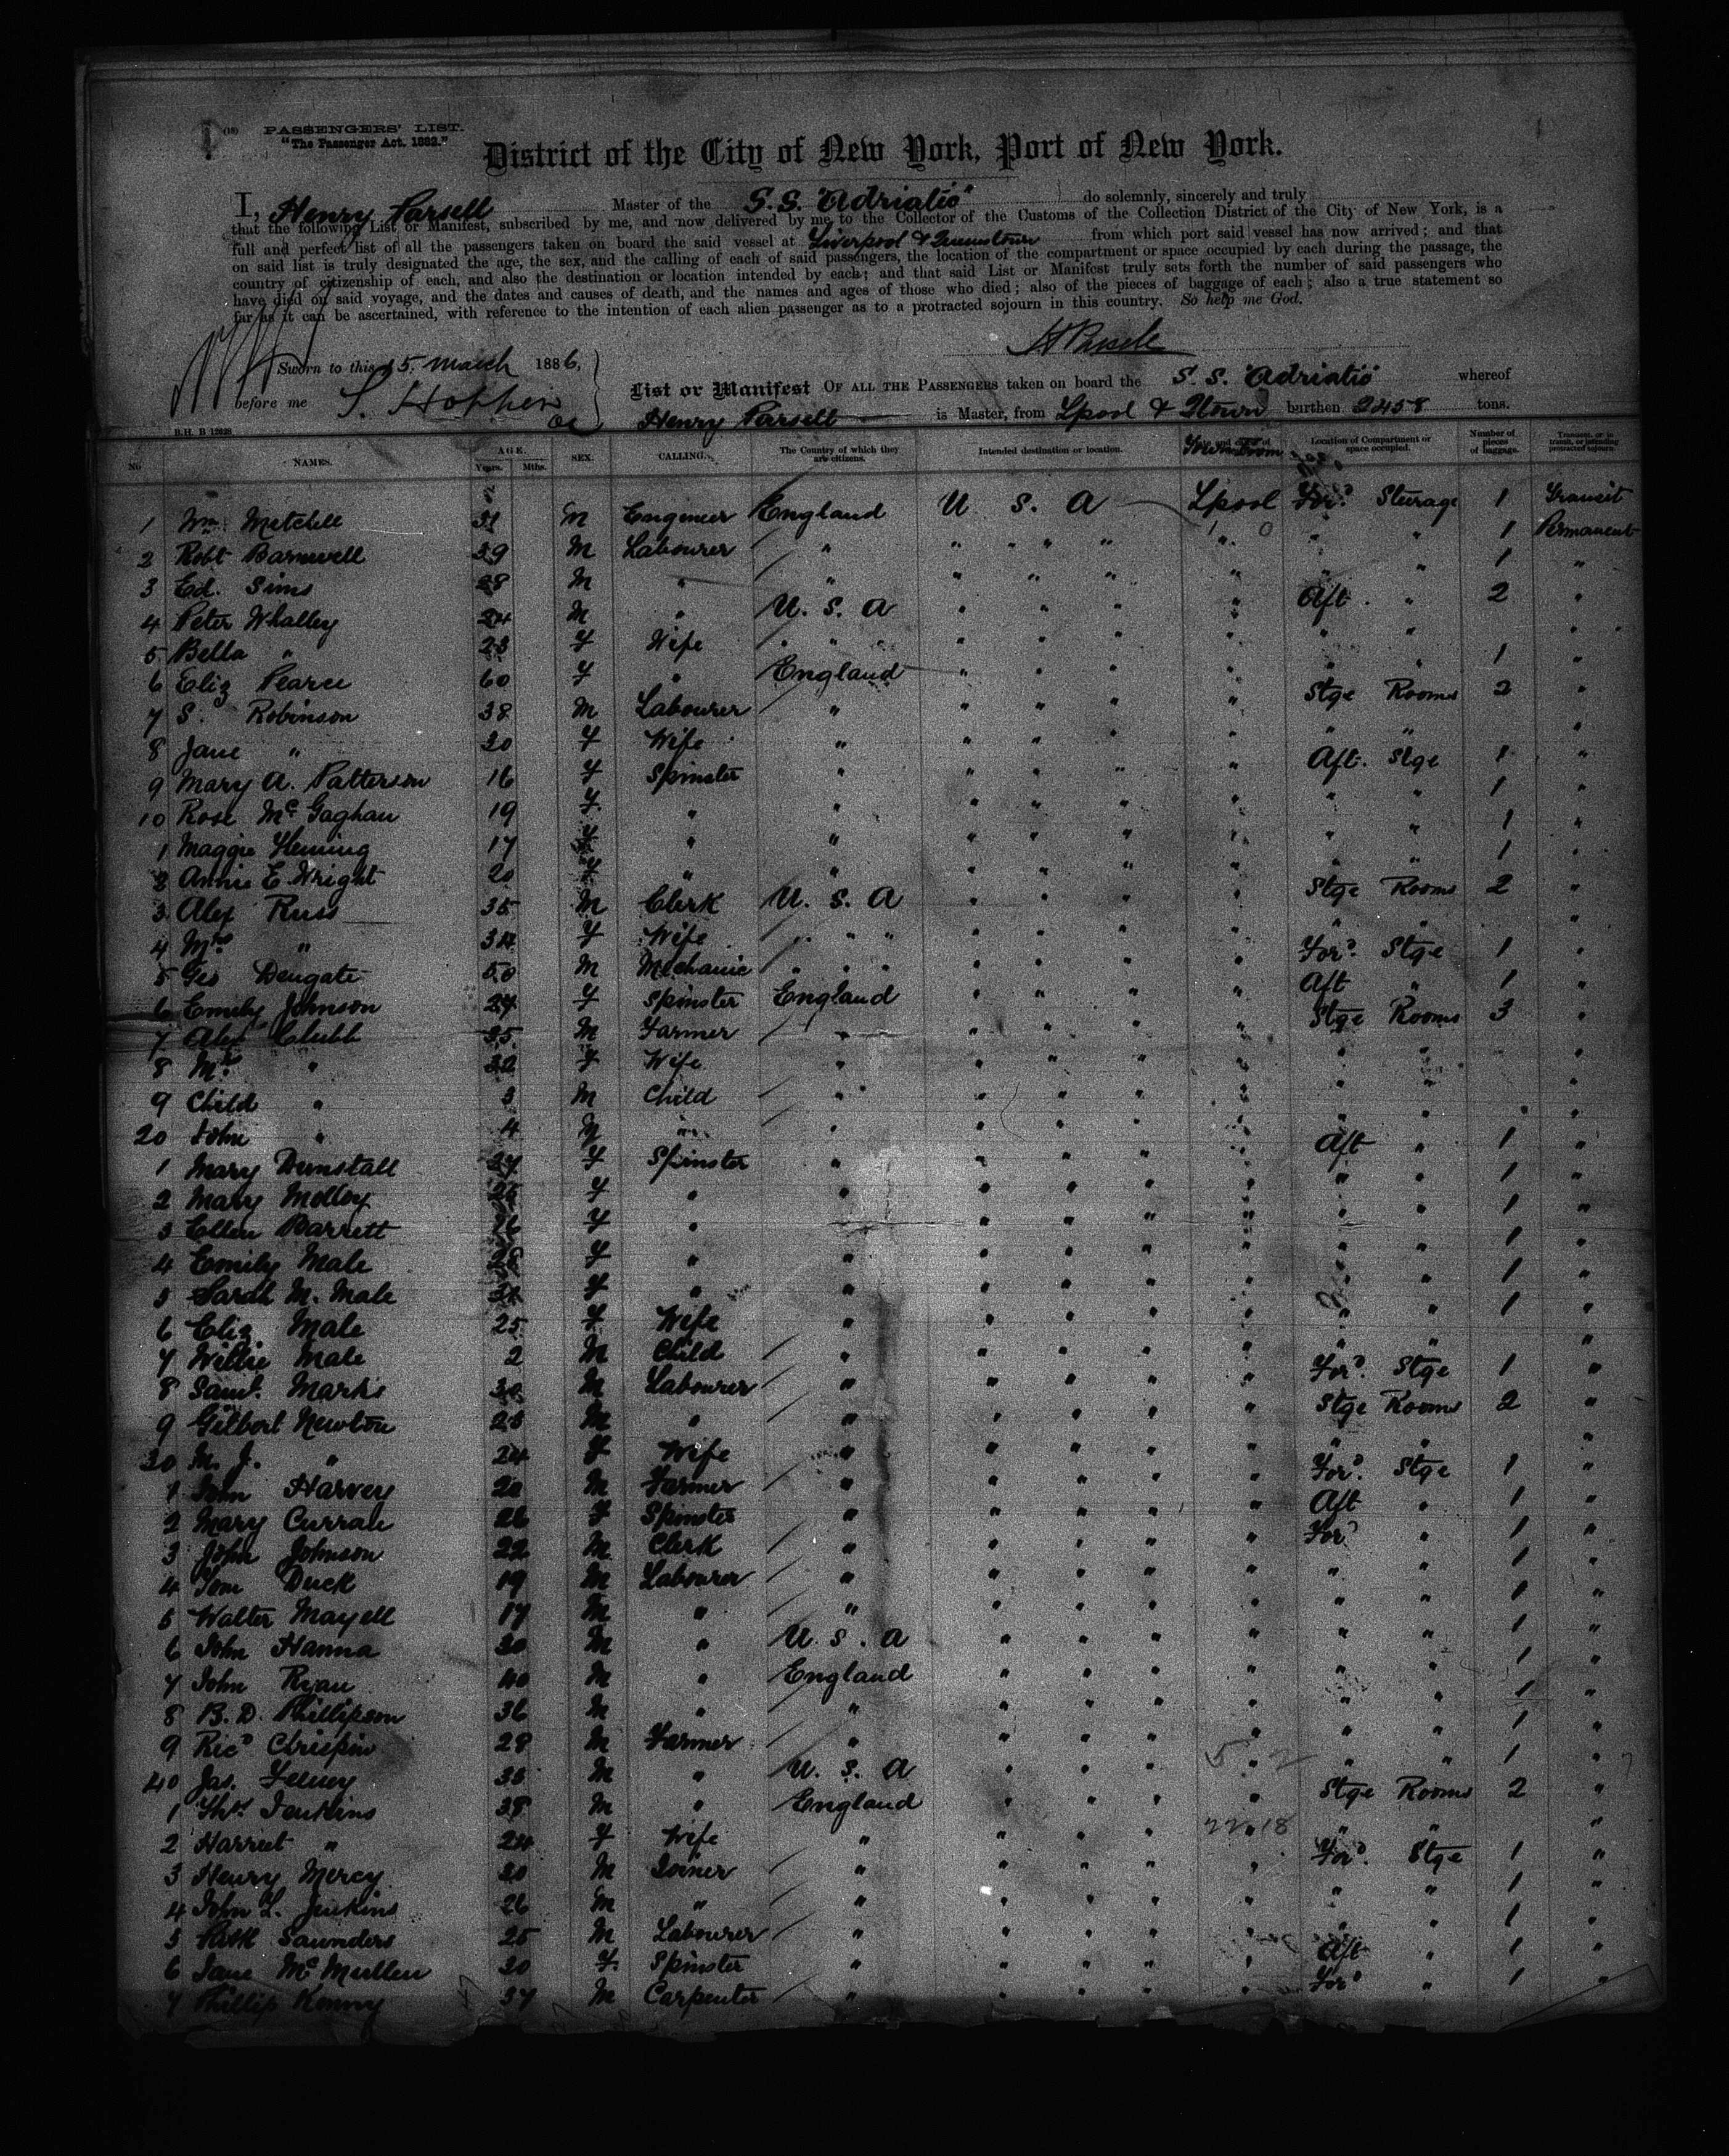 (18) PASSENGERS' LIST.
"The Passenger Act. 1882."
District of the City of New York, Port of New York.
I, Henry Parsell Master of the S.S. "Adriatic" do solemnly, sincerely and truly
that the following List or Manifest, subscribed by me, and now delivered by me to the Collector of the Customs of the Collection District of the City of New York, is a
full and perfect list of all the passengers taken on board the said vessel at Liverpool & Queenstown from which port said vessel has now arrived; and that
on said list is truly designated the age, the sex, and the calling of each of said passengers, the location of the compartment or space occupied by each during the passage, the
country of citizenship of each, and also the destination or location intended by each; and that said List or Manifest truly sets forth the number of said passengers who
have died on said voyage, and the dates and causes of death, and the names and ages of those who died; also of the pieces of baggage of each; also a true statement so
far as it can be ascertained, with reference to the intention of each alien passenger as to a protracted sojourn in this country. So help me God.
H Parsell
Sworn to this 15. March 1886,
before me S. Hopper
List or Manifest OF ALL THE PASSENGERS taken on board the S.S. "Adriatic" whereof
Henry Parsell is Master, from Lpool & Qtown burthen 2458 tons.
B.H. B 12628
No. NAMES. AGE. Years. Mths. SEX. CALLING. The Country of which they are citizens. Intended destination or location. Location of Compartment or space occupied. Number of pieces of baggage. Transient, or in transit, or intending protracted sojourn.
1 Wm Metchell 31 M Engineer England U. S. A Lpool For'd Steerage 1 Transit
2 Robt Barnwell 39 M Labourer " " " " " " " " 1 Permanent
3 Ed. Sims 28 M " " " " " " " " 1 "
4 Peter Whalley 24 M " U. S. A " " " " Aft " 2 "
5 Bella " 23 F Wife " " " " " " " " "
6 Eliz Pearce 60 F " England " " " " " " 1 "
7 S. Robinson 38 M Labourer " " " " " Stge Rooms 2 "
8 Jane " 30 F Wife " " " " " " " "
9 Mary A. Patterson 16 F Spinster " " " " " Aft. Stge 1 "
10 Rose McGaghan 19 F " " " " " " " " 1 "
1 Maggie Fleming 17 F " " " " " " " " 1 "
2 Annie E. Wright 20 F " " " " " " " " 1 "
3 Alex Russ 35 M Clerk U. S. A " " " " Stge Rooms 2 "
4 Mrs " 34 F Wife " " " " " " " " " "
5 Geo Dengate 50 M Mechanic " " " " " " " For'd Stge 1 "
6 Emily Johnson 27 F Spinster England " " " " Aft " 1 "
7 Alex Clubb 35 M Farmer " " " " " Stge Rooms 3 "
8 Mrs " 32 F Wife " " " " " " " "
9 Child " 3 M Child " " " " " " " "
20 John " 4 M " " " " " " " " "
1 Mary Dunstall 27 F Spinster " " " " " Aft " 1 "
2 Mary Molloy 25 F " " " " " " " " 1 "
3 Ellen Barrett 26 F " " " " " " " " 1 "
4 Emily Male 28 F " " " " " " " " 1 "
5 Sarah M. Male F " " " " " " " " 1 "
6 Eliz Male 25 F Wife " " " " " " " 1 "
7 Willie Male 2 M Child " " " " " " " "
8 Saml. Marks 30 M Labourer " " " " " For'd. Stge 1 "
9 Gilbert Newton 25 M " " " " " " Stge Rooms 2 "
30 M. J. " 24 F Wife " " " " " " " "
1 Harvey 20 M Farmer " " " " " For'd. Stge 1 "
2 Mary Curran 26 F Spinster " " " " " Aft " 1 "
3 John Johnson 22 M Clerk " " " " " For'd " 1 "
4 Tom Duck 19 M Labourer " " " " " " " 1 "
5 Walter Mayell 17 M " " " " " " " " 1 "
6 John Hanna 30 M " U. S. A " " " " " " 1 "
7 John Ryan 40 M " England " " " " " " 1 "
8 B. D. Phillipson 36 M " " " " " " " " 1 "
9 Ric'd 28 M Farmer " " " " " " " 1 "
40 Jas. 35 M " U. S. A " " " " " " 1 "
1 Thos. Jenkins 38 M " England " " " " Stge Rooms 2 "
2 Harriet " 24 F Wife " " " " " " " "
3 Henry Mercy 20 M Joiner " " " " " For'd. Stge 1 "
4 John L. Jenkins 26 M " " " " " " " " 1 "
5 Saunders 25 M Labourer " " " " " " " 1 "
6 Jane McMullen 20 F Spinster " " " " " Aft " 1 "
7 Phillip Kenny 37 M Carpenter " " " " " For'd " 1 "